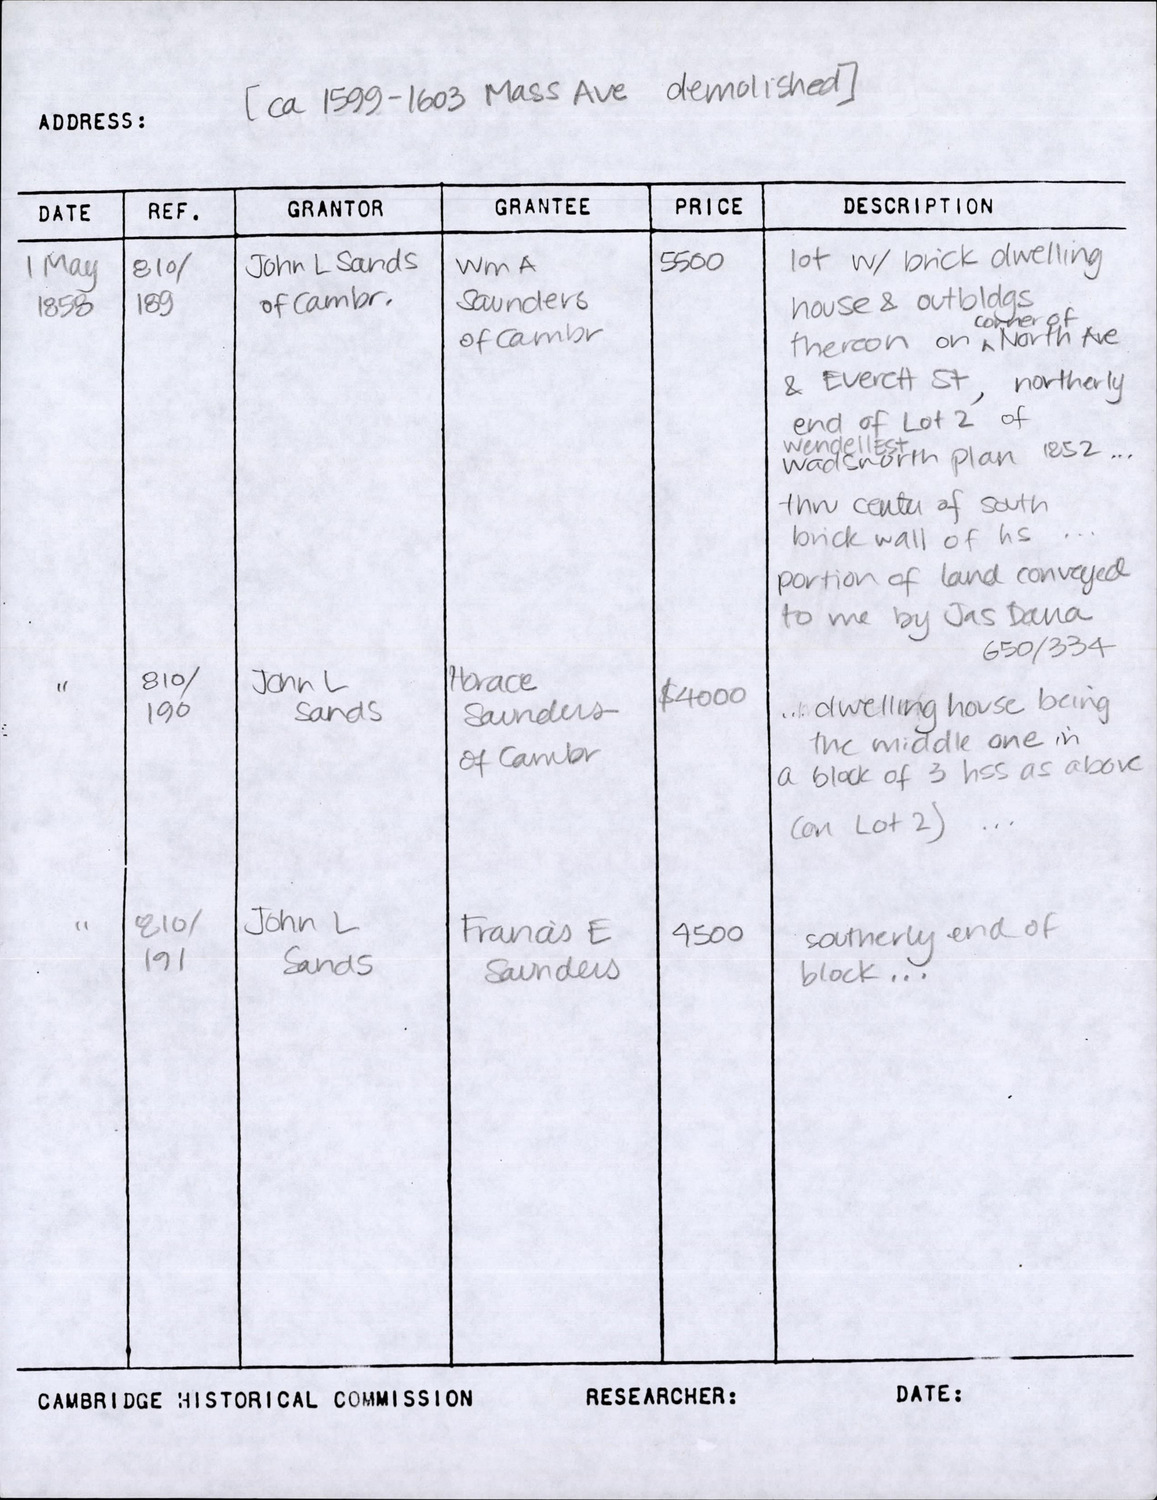 [ca 1599-1603 Mass Ave demolished]
ADDRESS:
DATE REF. GRANTOR GRANTEE PRICE DESCRIPTION
1 May
1858
810/
189
John L Sands
of Cambr.
Wm A
Saunders
of Cambr
5500
lot w/ brick dwelling
house & outbldgs
corner of
thereon on ^ North Ave
& Everett St, northerly
end of Lot 2 of
Wendell Est
Wadsworth plan 1852 ...
thru center of south
brick wall of hs ...
portion of land conveyed
to me by Jas Dana
650/334
"
810/
190
John L
Sands
Horace
Saunders
of Cambr
$4000
... dwelling house being
the middle one in
a block of 3 hss as above
(on Lot 2) ...
"
810/
191
John L
Sands
Francis E
Saunders
4500
southerly end of
block ...
CAMBRIDGE HISTORICAL COMMISSION RESEARCHER: DATE: